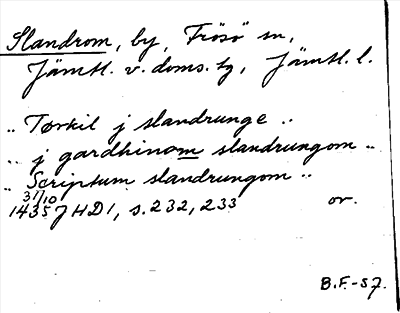 Slandrom, by, Frösö sn,
Jämtl. v. doms. tg, Jämtl. l.
.. Torkil j slandrunge ..
.. j gardhinom slandrungom ..
.. Scriptum slandrungom ..
31/10
1435 JHD1, s. 232, 233 or.
B.F.-57.